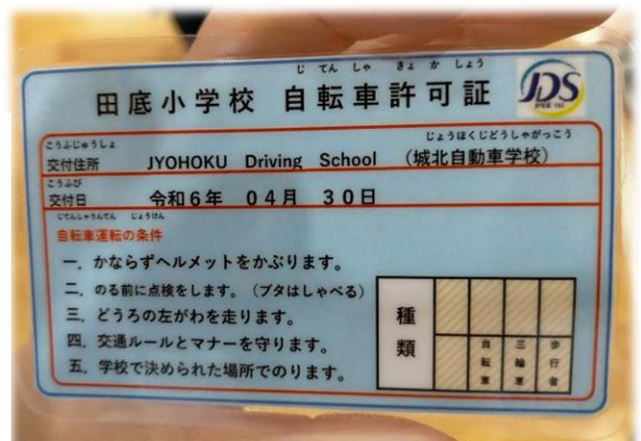 じ てん しゃ きょ か しょう
田底小学校 自転車許可証
JDS
じょうほくじどうしゃがっこう
こうふじゅうしょ
交付住所 JYOHOKU Driving School （城北自動車学校）
こうふび
交付日 令和６年 ０４月 ３０日
じてんしゃうんてん じょうけん
自転車運転の条件
一．かならずヘルメットをかぶります。
二．のる前に点検をします。（ブタはしゃべる）
三．どうろの左がわを走ります。
四．交通ルールとマナーを守ります。
五．学校で決められた場所でのります。
種類
自転車
三輪車
歩行者